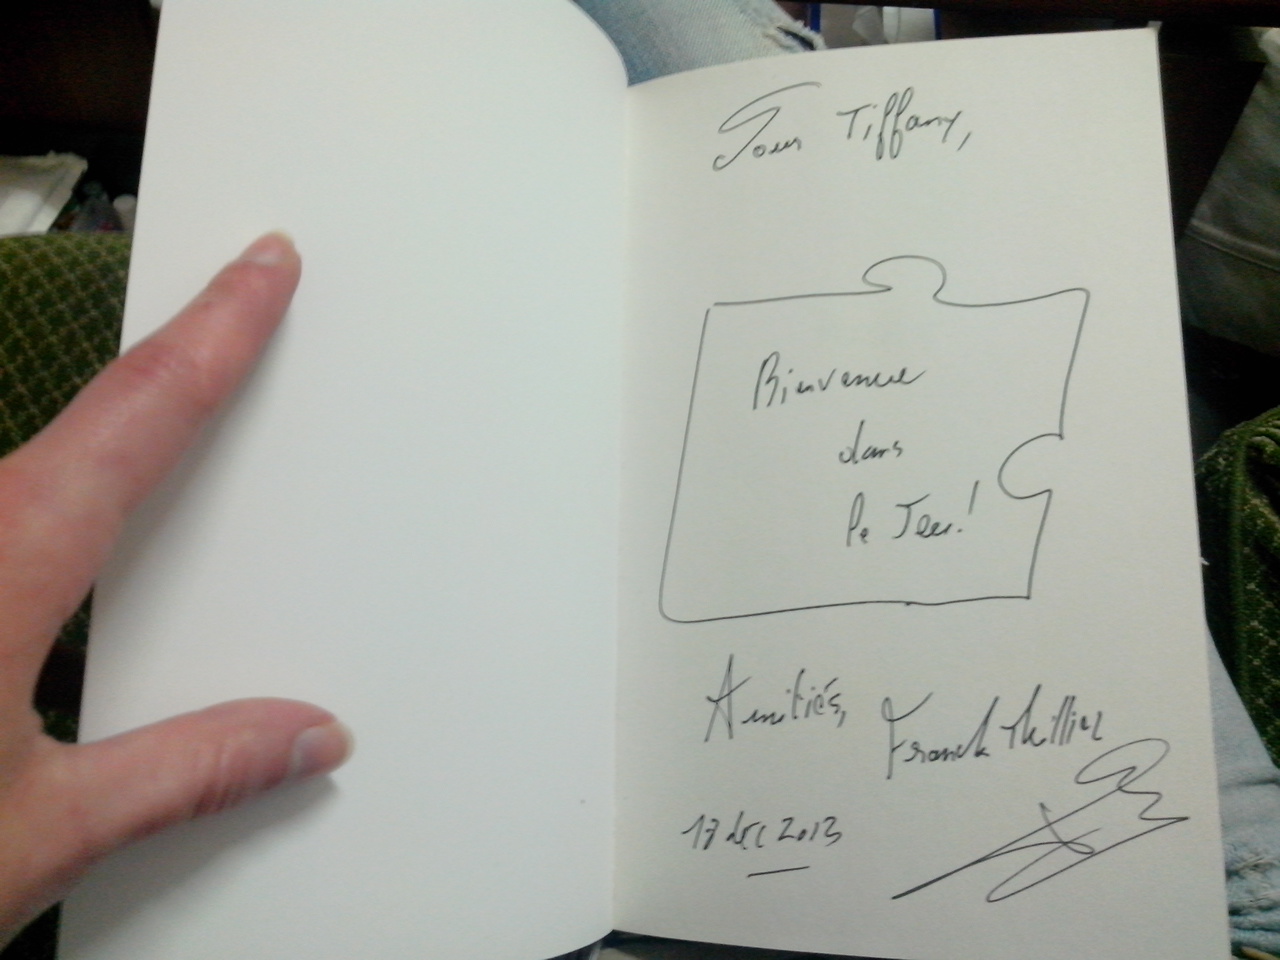 Pour Tiffany,
Bienvenue
dans
le Jeu!
Amitiés,
Franck Thilliez
17 dec 2013